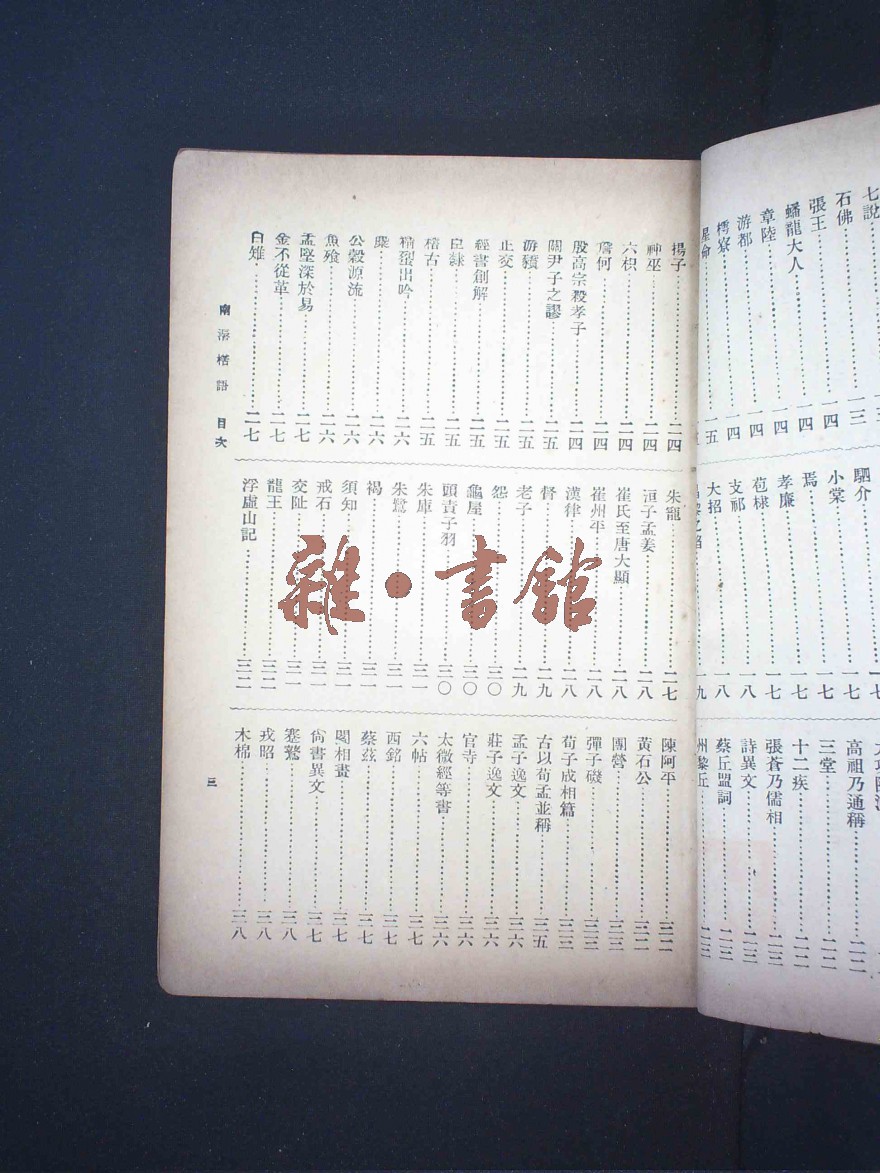 七說
石佛
張王……一四
蟠龍大人……一四
章陸……一四
游都……一四
樗寮……一四
星命……一五
駟介
小棠……一七
焉……一七
孝廉……一七
苞棣……一七
支祁……一八
大招……一八
高祖乃通稱……二二
三堂……二二
十二疾……二二
張蒼乃儒相……二二
詩異文……二三
蔡丘盟詞……二三
州黎丘……二三
揚子……二四
神巫……二四
六枳……二四
詹何……二四
殷高宗殺孝子……二四
關尹子之謬……二五
游贖……二五
止交……二五
經書創解……二五
皂隸……二五
稽古……二五
精蛩出吟……二六
麋……二六
公穀源流……二六
魚飱……二六
孟堅深於易……二七
金不從革……二七
白雉……二七
朱寵……二七
洹子孟姜……二八
崔氏至唐大顯……二八
崔州平……二八
漢律……二八
督……二九
老子……二九
怨……三〇
龜屋……三〇
頭責子羽……三〇
朱庫……三一
朱鷺……三一
褐……三一
須知……三一
戒石……三一
交阯……三一
龍王……三二
浮虛山記……三二
陳阿平……三二
黃石公……三二
團營……三三
彈子磯……三三
荀子成相篇……三三
古以荀孟並稱……三五
孟子逸文……三六
莊子逸文……三六
官寺……三六
太微經等書……三六
六帖……三七
西銘……三七
蔡茲……三七
閣相畫……三七
尙書異文……三七
蹇驁……三八
戎昭……三八
木棉……三八
南漘楛語 目次
三
雜·書館